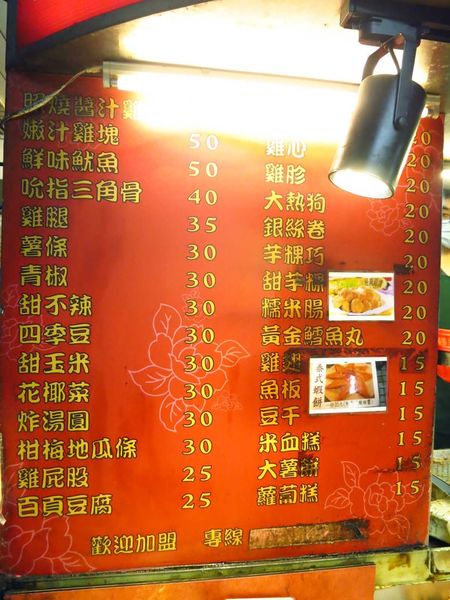 照燒醬汁雞
嫩汁雞塊 50
鮮味魷魚 50
吮指三角骨 40
雞腿 35
薯條 30
青椒 30
甜不辣 30
四季豆 30
甜玉米 30
花椰菜 30
炸湯圓 30
柑梅地瓜條 30
雞屁股 25
百頁豆腐 25
20
雞心 20
雞胗 20
大熱狗 20
銀絲卷 20
芋粿巧 20
甜芋粿 20
糯米腸 20
黃金鱈魚丸 20
雞翅 15
魚板 15
豆干 15
米血糕 15
大薯餅 15
蘿蔔糕 15
泰式蝦餅
歡迎加盟 專線